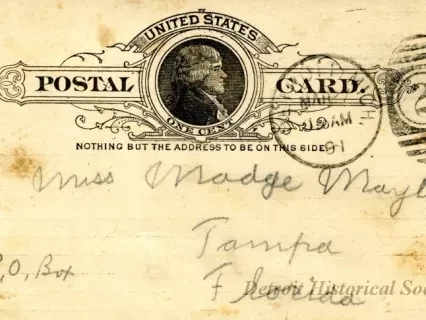 UNITED STATES
POSTAL CARD.
ONE CENT
MAR
12 AM
91
NOTHING BUT THE ADDRESS TO BE ON THIS SIDE.
Miss Madge Mayb
Tampa
P.O. Box
Florida
Detroit Historical Soc